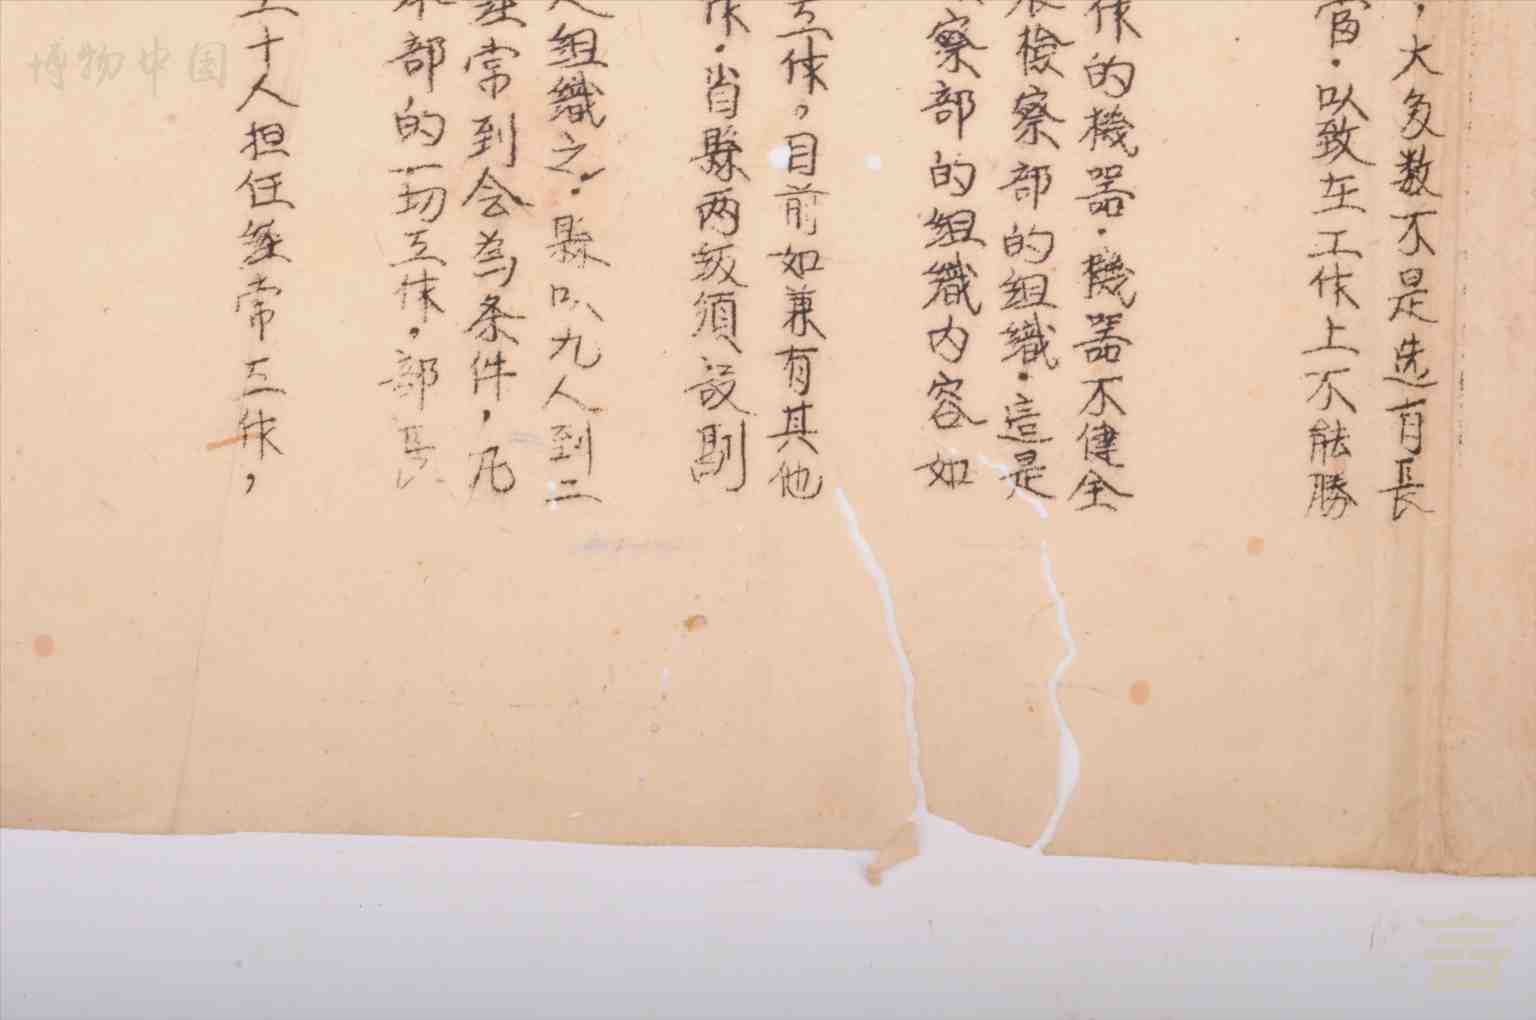 ，大多数不是选有長
當·以致在工作上不能勝
作的機器·機器不健全
農檢察部的組織·這是
察部的組織内容如
工作。目前如兼有其他
作·省縣两級須設副
人組織之·縣以九人到二
經常到会為条件，凡
本部的一切工作，部長
工十人担任經常工作，
博物中国
言